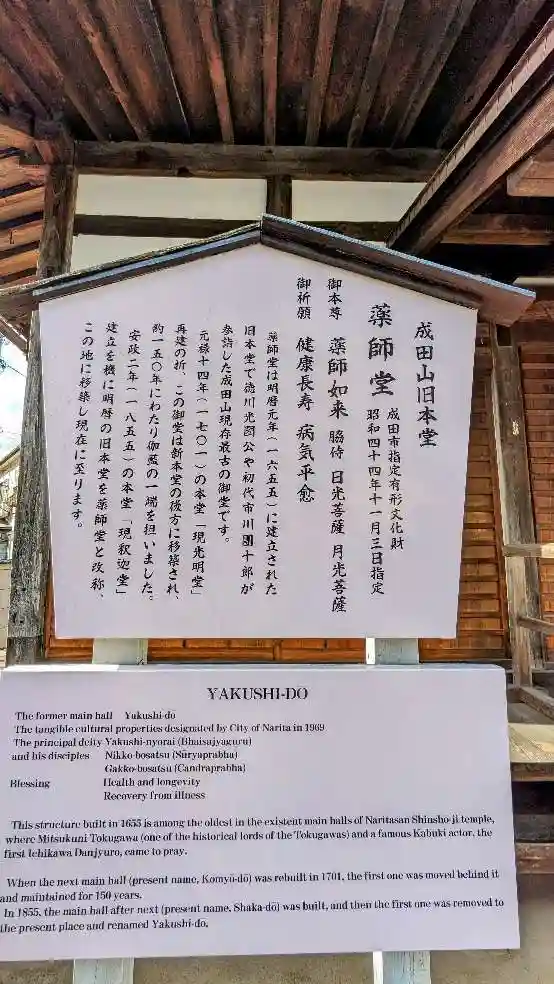 成田山旧本堂
薬師堂
成田市指定有形文化財
昭和四十四年十一月三日指定
御本尊 薬師如来 脇侍 日光菩薩 月光菩薩
御祈願 健康長寿 病気平癒
薬師堂は明暦元年(一六五五)に建立された
旧本堂で徳川光圀公や初代市川團十郎が
参詣した成田山現存最古の御堂です。
元禄十四年(一七〇一)の本堂「現光明堂」
再建の折、この御堂は新本堂の後方に移築され、
約一五〇年にわたり伽藍の一端を担いました。
安政二年(一八五五)の本堂「現釈迦堂」
建立を機に明暦の旧本堂を薬師堂と改称、
この地に移築し現在に至ります。
YAKUSHI-DO
The former main hall Yakushi-do
The tangible cultural properties designated by City of Narita in 1969
The principal deity Yakushi-nyorai (Bhaisajyaguru)
and his disciples Nikko-bosatsu (Sūryaprabha)
Gakko-bosatsu (Candraprabha)
Blessing Health and longevity
Recovery from illness
This structure built in 1655 is among the oldest in the existent main halls of Naritasan Shinsho-ji temple,
where Mitsukuni Tokugawa (one of the historical lords of the Tokugawas) and a famous Kabuki actor, the
first Ichikawa Danjyuro, came to pray.
When the next main hall (present name, Komyō-dō) was rebuilt in 1701, the first one was moved behind it
and maintained for 150 years.
In 1855, the main hall after next (present name, Shaka-dō) was built, and then the first one was removed to
the present place and renamed Yakushi-do.